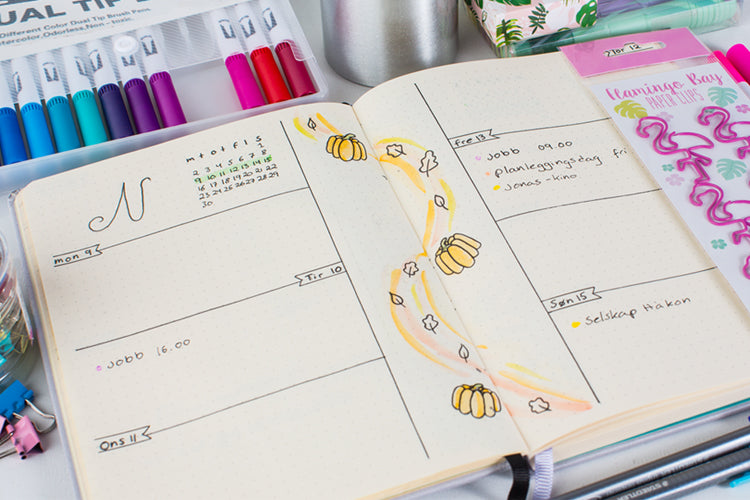 UAL TIP
Different Color Dual Tip Brush Pen,
atercolor,Odorless,Non - toxic.
N
m t o t f l s
1
2 3 4 5 6 7 8
9 10 11 12 13 14 15
16 17 18 19 20 21 22
23 24 25 26 27 28 29
30
mon 9
Tir 10
Jobb 16.00
Ons 11
Tor 12
fre 13
Jobb 09.00
planleggingsdag fri
Jonas - kino
Søn 15
Selskap Håkon
Flamingo Bay
PAPER CLIPS
STAEDTLER